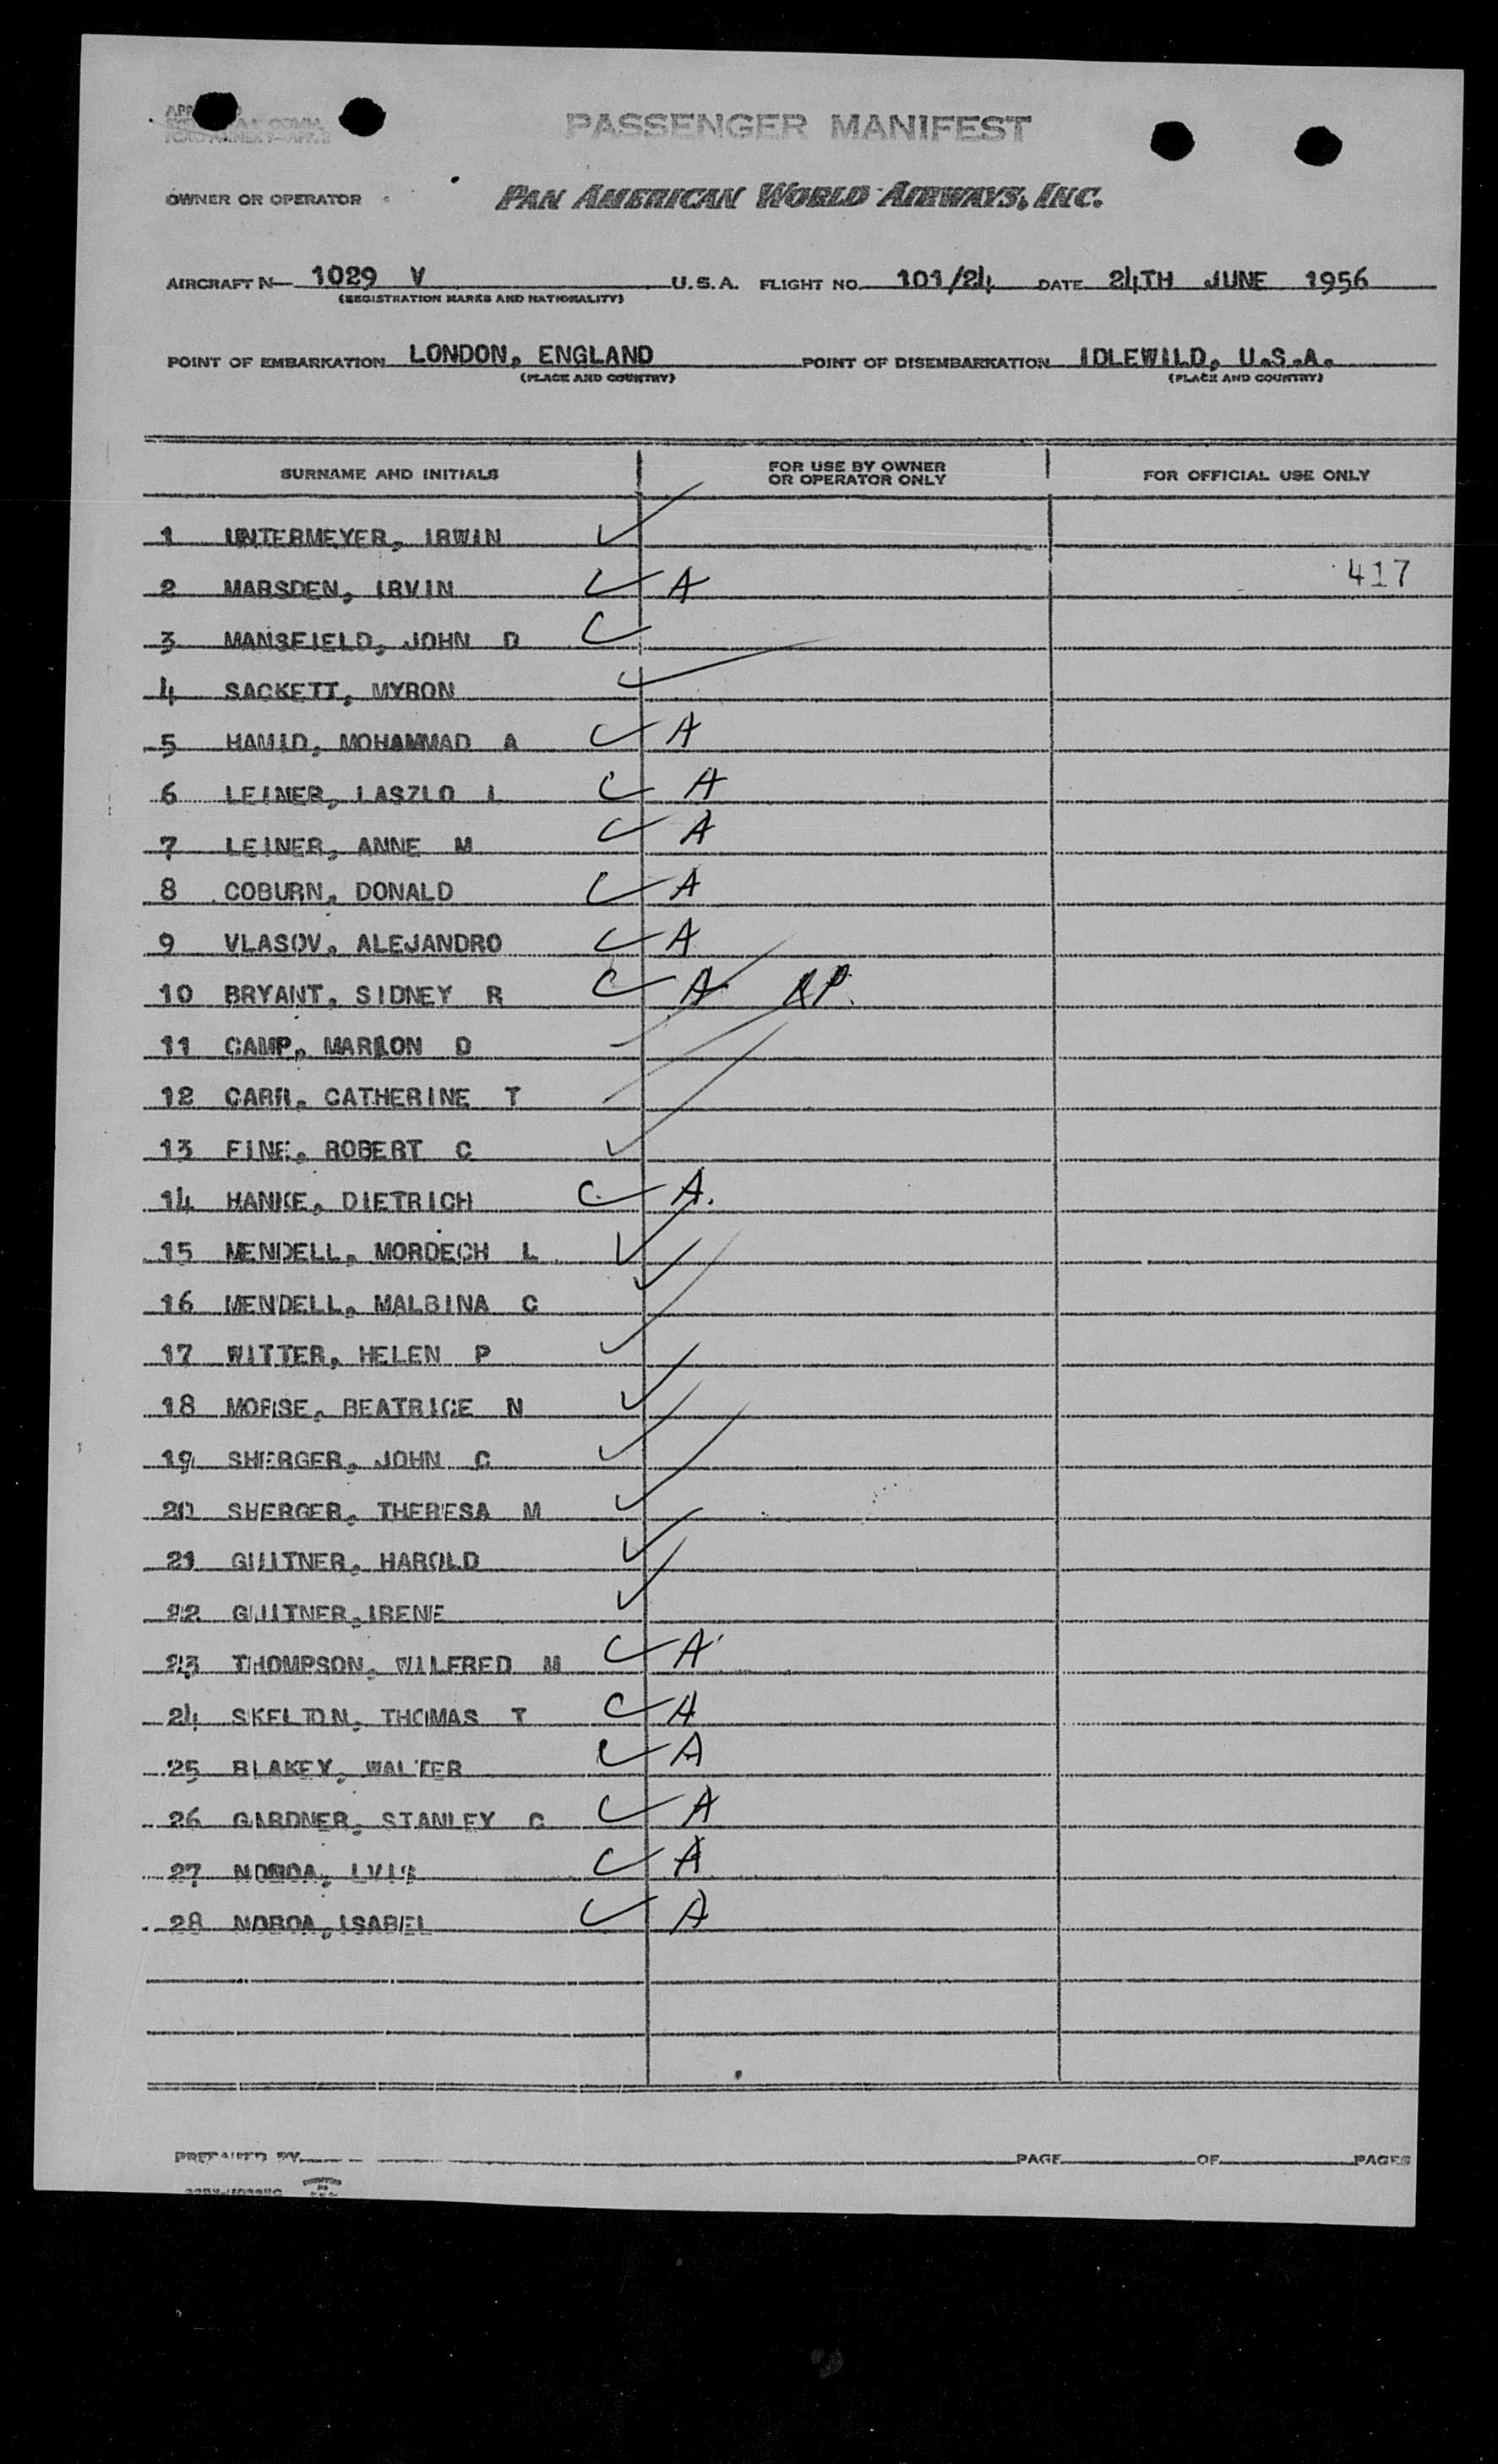 PASSENGER MANIFEST
OWNER OR OPERATOR PAN AMERICAN WORLD AIRWAYS, INC.
AIRCRAFT N 1029 V U.S.A. FLIGHT NO. 101/24 DATE 24TH JUNE 1956
(REGISTRATION MARKS AND NATIONALITY)
POINT OF EMBARKATION LONDON, ENGLAND POINT OF DISEMBARKATION IDLEWILD, U.S.A.
(PLACE AND COUNTRY) (PLACE AND COUNTRY)
SURNAME AND INITIALS FOR USE BY OWNER OR OPERATOR ONLY FOR OFFICIAL USE ONLY
1 UNTERMEYER, IRWIN
2 MARSDEN, IRVIN A 417
3 MANSFIELD, JOHN D
4 SACKETT, MYRON
5 HAMID, MOHAMMAD A A
6 LEINER, LASZLO L A
7 LEINER, ANNE M A
8 COBURN, DONALD A
9 VLASOV, ALEJANDRO A
10 BRYANT, SIDNEY R A
11 CAMP, MARION D
12 CARR, CATHERINE T
13 FINE, ROBERT C
14 HANKE, DIETRICH A.
15 MENDELL, MORDECH L
16 MENDELL, MALBINA C
17 WITTER, HELEN P
18 MORSE, BEATRICE N
19 SHERGER, JOHN C
20 SHERGER, THERESA M
21 GUITNER, HAROLD
22 GUITNER, IRENE
23 THOMPSON, WILFRED M A
24 SKELTON, THOMAS T A
25 BLAKEY, WALTER A
26 GARDNER, STANLEY C A
27 NOBOA, LVIS A
28 NOBOA, ISABEL A
PREPARED BY PAGE OF PAGES